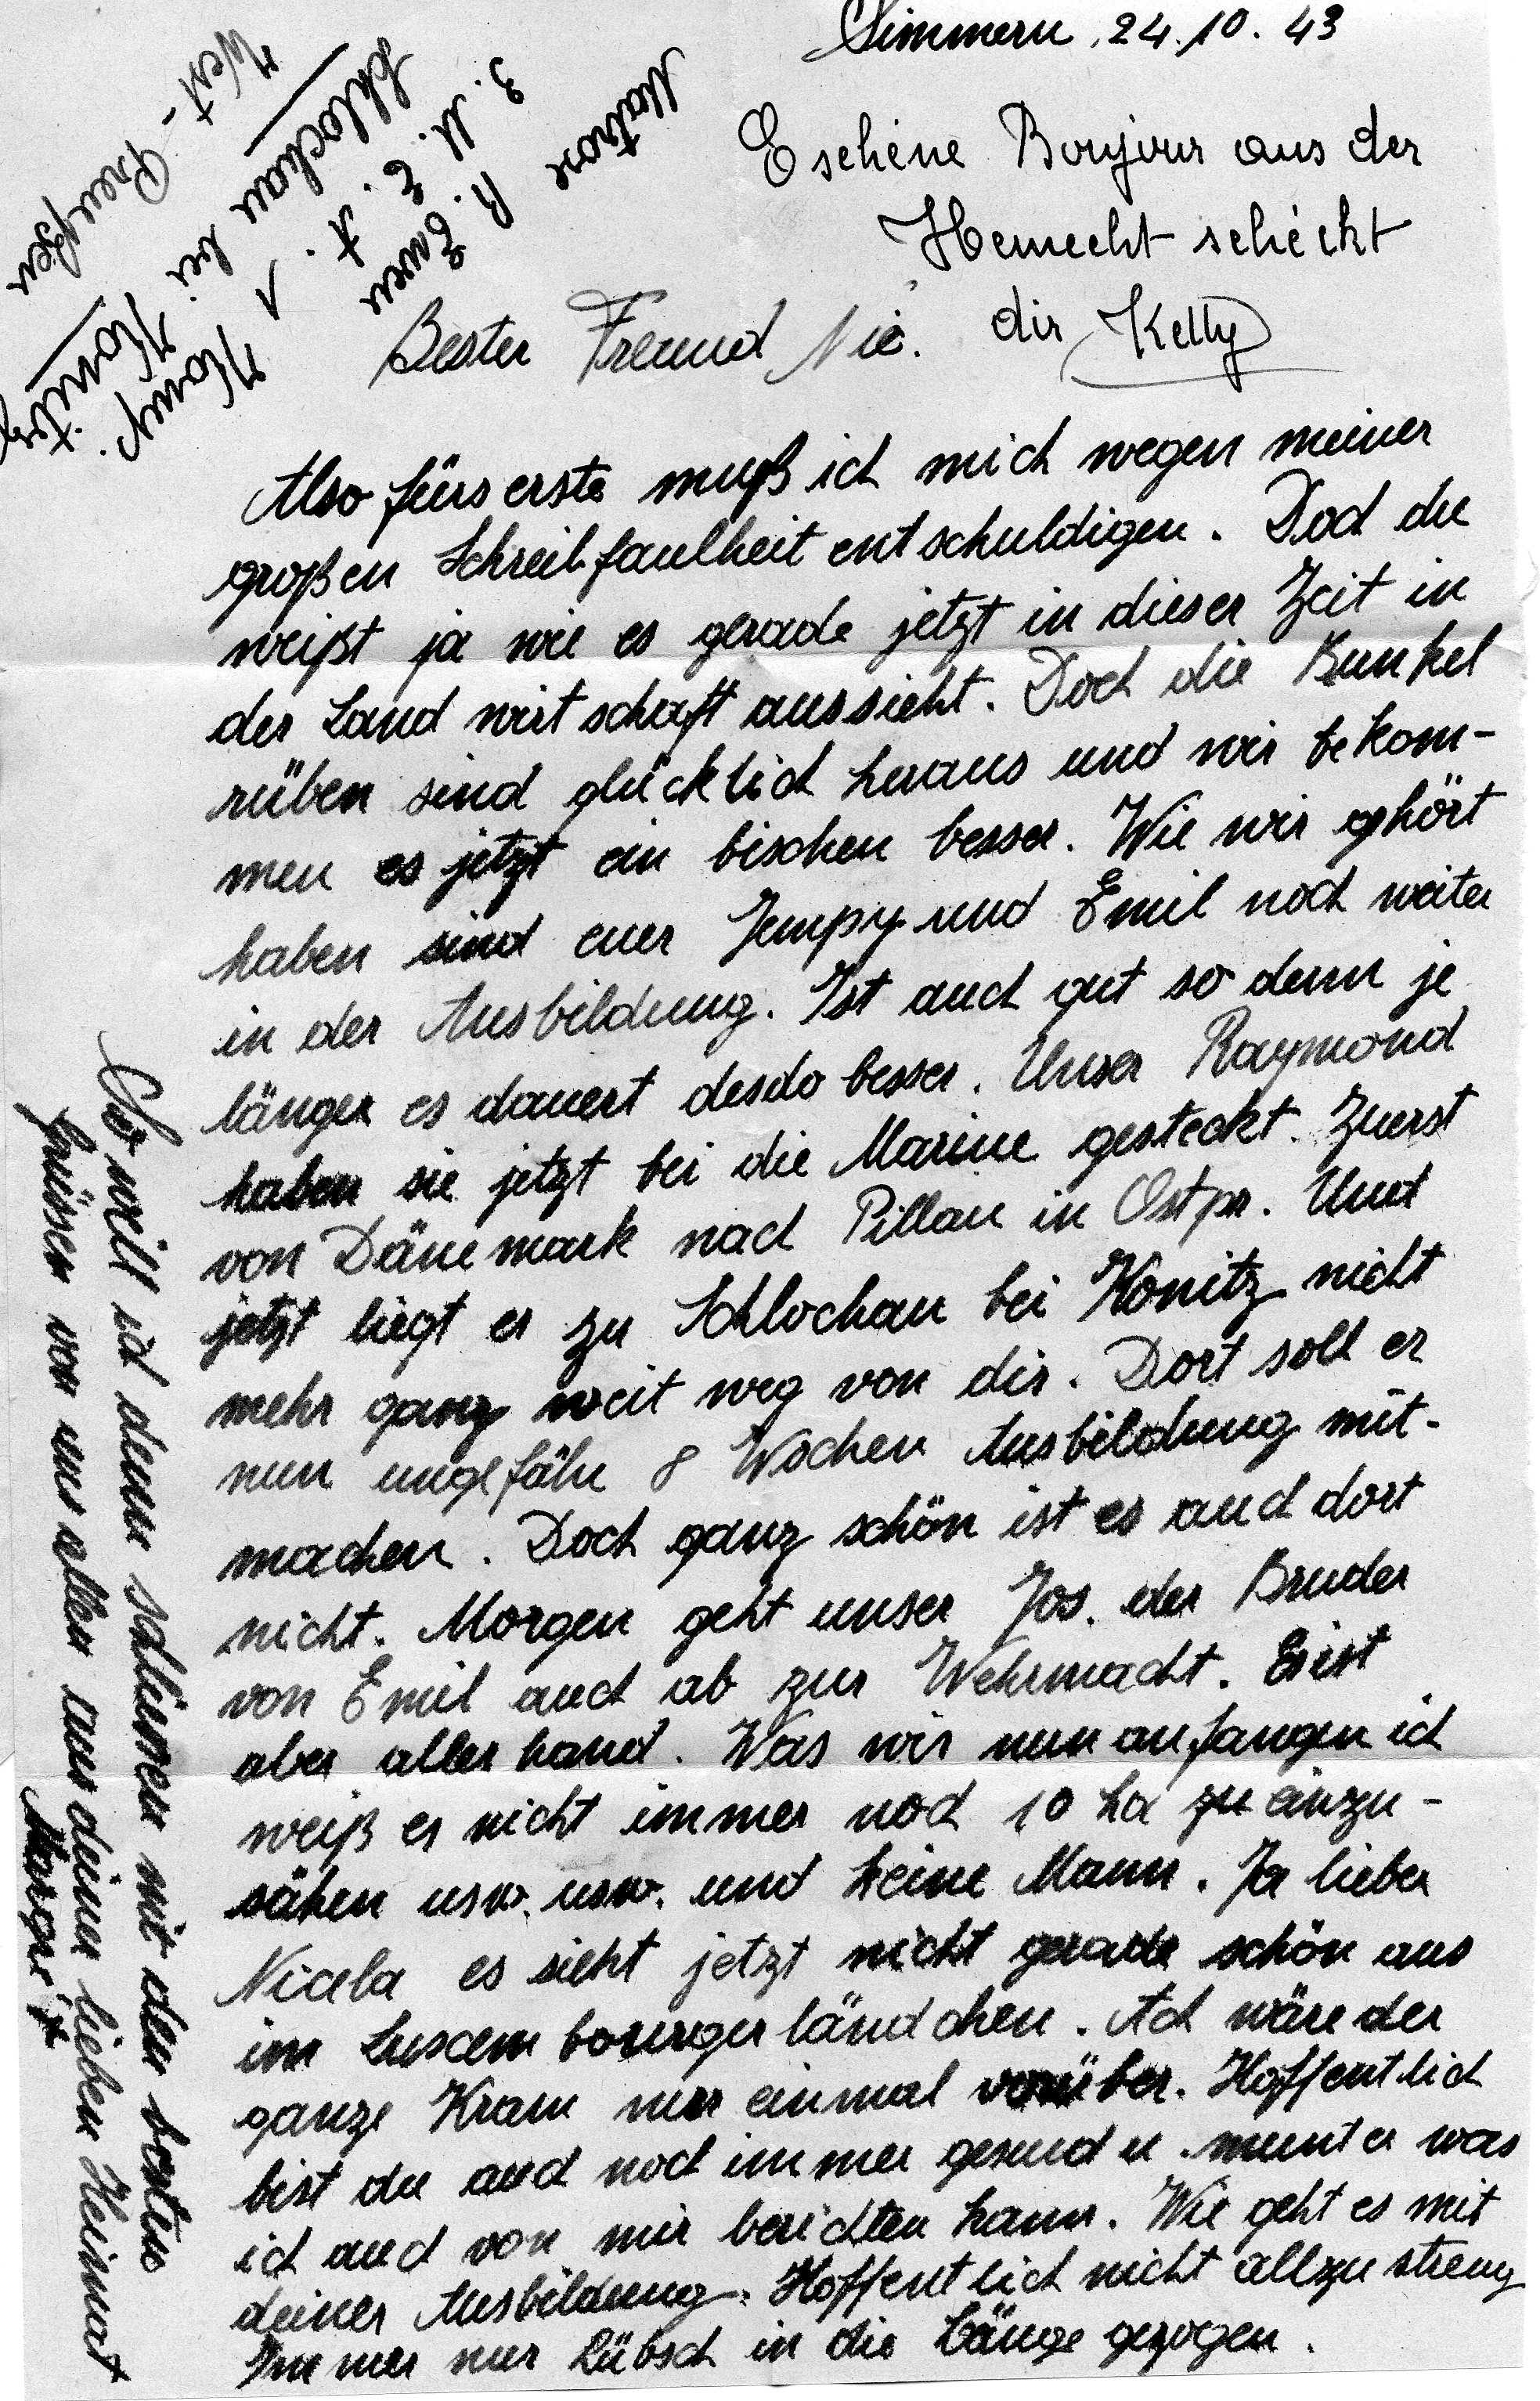 Simmern, 24.10.43
E schéne Boujour aus der
Hemecht schéckt
dir Kelly
Matrose
R. Ewen
3. M. E. A.
1. Komp.
Schlochau bei Konitz
West-Preußen
Bester Freund Nic.
Also fürs erste muß ich mich wegen meiner
großen Schreibfaulheit entschuldigen. Doch du
weißt ja wie es gerade jetzt in dieser Zeit in
der Landwirtschaft aussieht. Doch die Runkel
rüben sind glücklich heraus und wir bekom-
men es jetzt ein bischen besser. Wie wir gehört
haben sind euer Jempy und Emil noch weiter
in der Ausbildung. Ist auch gut so denn je
länger es dauert desdo besser. Unser Raymond
haben sie jetzt bei die Marine gesteckt. Zuerst
von Dänemark nach Pillau in Ostpr. Und
jetzt liegt er zu Schlochau bei Konitz nicht
mehr ganz weit weg von dir. Dort soll er
nun ungefähr 8 Wochen Ausbildung mit-
machen. Doch ganz schön ist es auch dort
nicht. Morgen geht unser Jos. der Bruder
von Emil auch ab zur Wehrmacht. Es ist
aber allerhand. Was wir nun anfangen ich
weiß es nicht immer noch 10 ha zu einzu-
sähen usw. usw. und keine Mann. Ja lieber
Nicela es sieht jetzt nicht gerade schön aus
im Luxembourgerländchen. Ach wäre der
ganze Kram nur einmal vorüber. Hoffentlich
bist du auch noch immer gesund u. munter was
ich auch von mir berichten kann. Wie geht es mit
deiner Ausbildung. Hoffentlich nicht allzu streng
Immer nur hübsch in die Länge gezogen.
So will ich denn schliesen mit den besten
Grüssen von uns allen aus deiner lieben Heimat